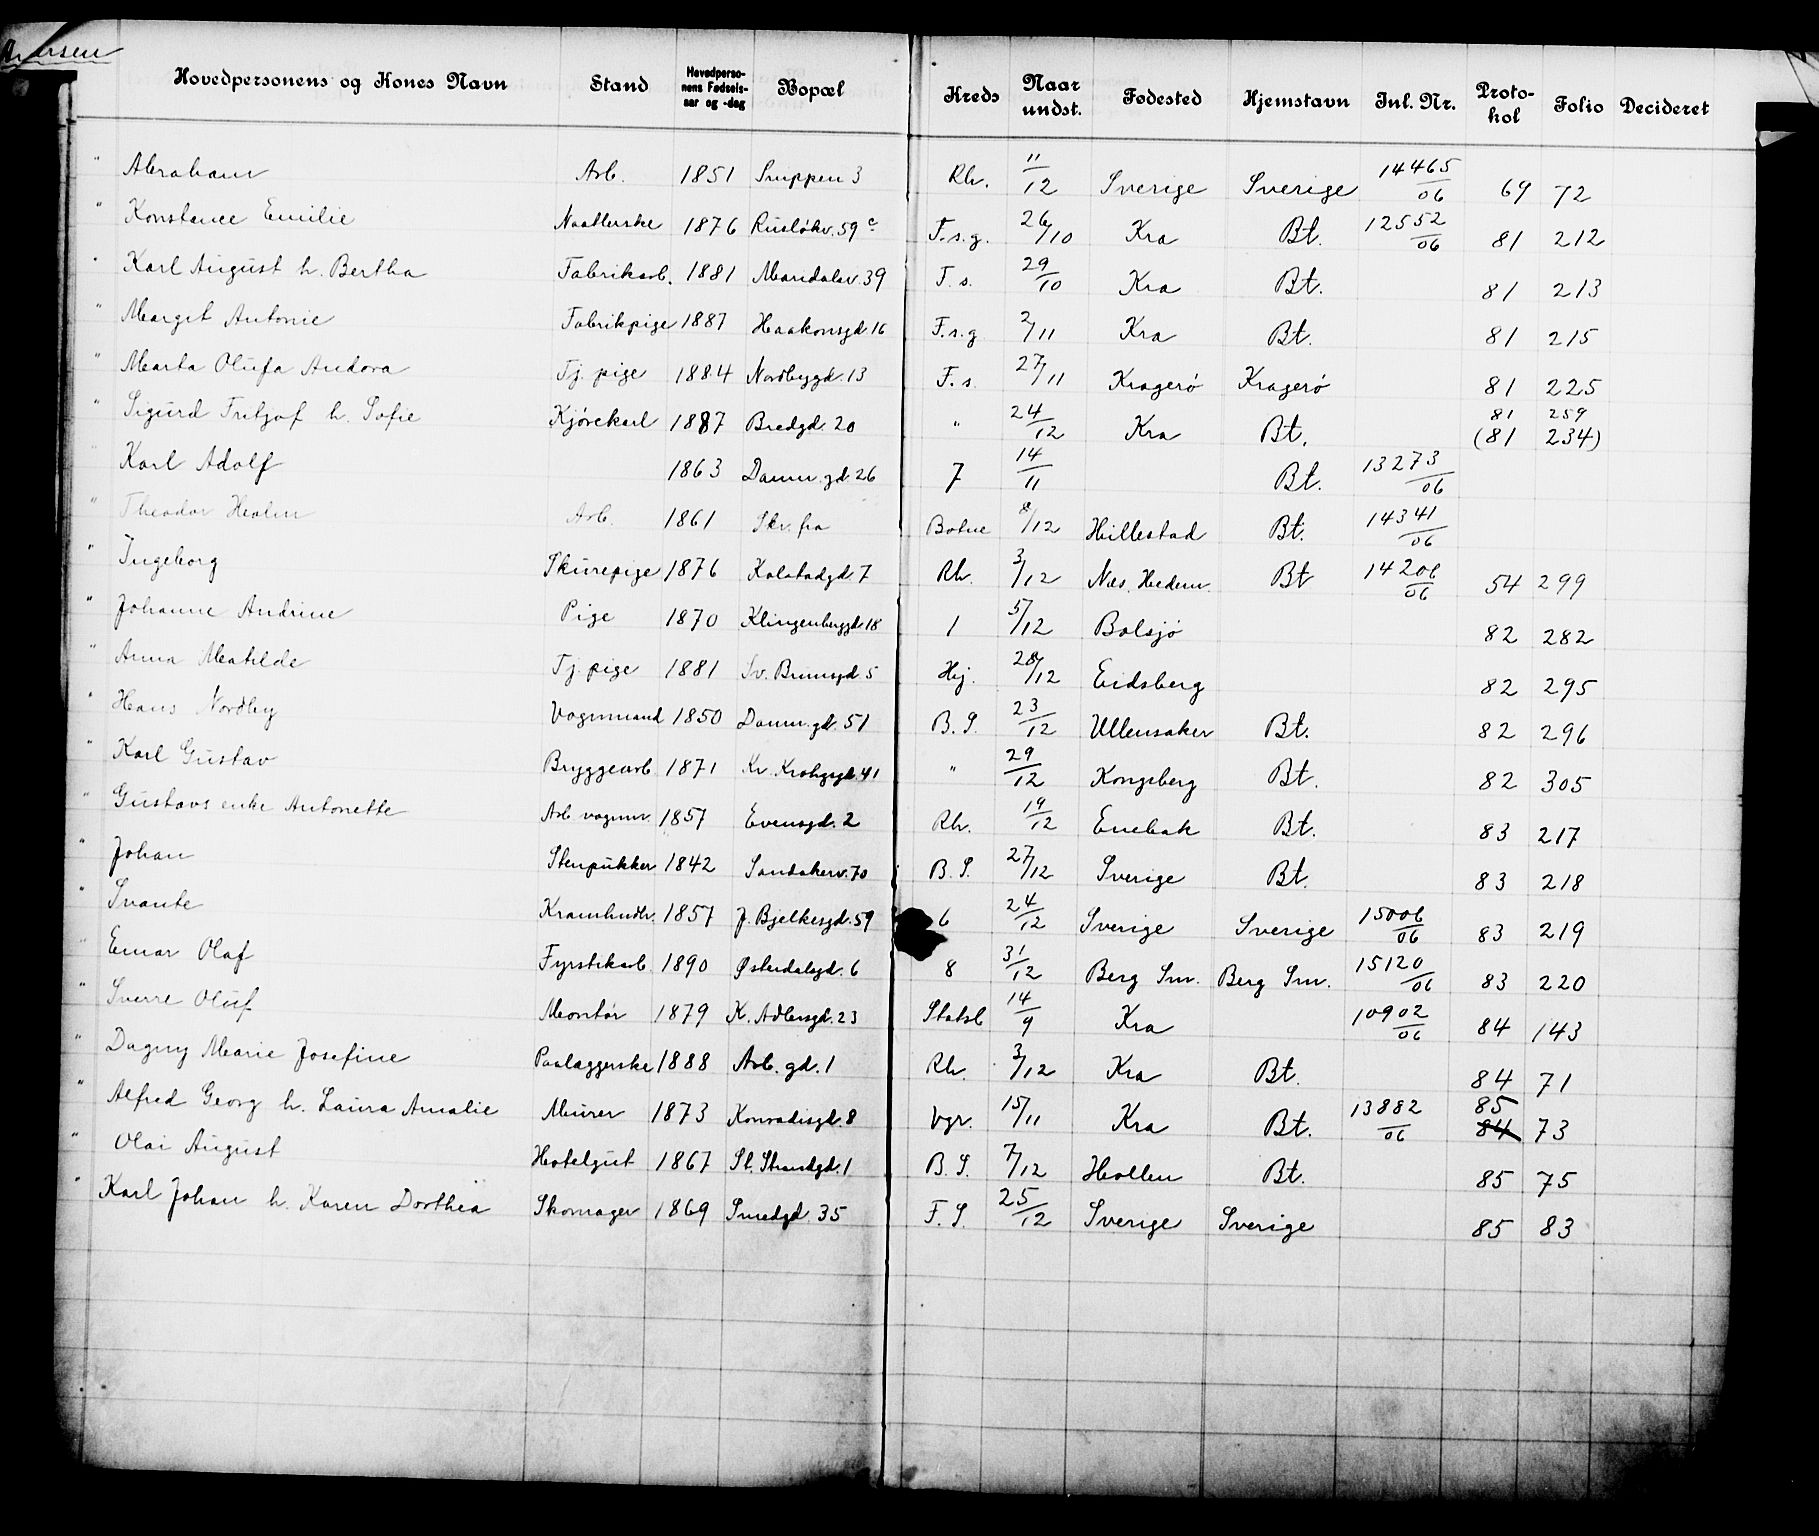 Hovedpersonens og Kones Navn Stand Hovedpersonens Fødselsaar og -dag Bopæl Kreds Naar undst. Fødested Hjemstavn Inl. Nr. Protokol Folio Decideret
" Abraham Arb. 1851 Snippen 3 Rh. 11/12 Sverige Sverige 14465/06 69 72
" Konstance Emilie Naatlerske 1876 Rusløkv. 59 c F.s.g. 26/10 Kra Bt. 12552/06 81 212
" Karl August h. Bertha Fabrikarb. 1881 Mandalsv. 39 F.s. 29/10 Kra Bt. 81 213
" Margit Antonie Fabrikpige 1887 Haakonsgd 16 F.s.g 2/11 Kra Bt. 81 215
" Marta Olufa Andora Tj. pige 1884 Nordbygd. 13 F.s. 27/11 Kragerø Kragerø 81 225
" Sigurd Fritjof h. Sofie Kjørekarl 1887 Bredgd. 20 " 24/12 Kra Bt. 81 259 (81 234)
Karl Adolf 1863 Damm.gd. 26 7 14/11 Bt. 13273/06
" Theodor Holm Arb. 1861 Skr. fra Botne 8/12 Hillestad Bt. 14341/06
" Ingeborg Skurepige 1876 Kalstadgd. 7 Rh. 3/12 Næs. Hedem. Bt 14206/06 54 299
" Johanne Andrine Pige 1870 Klingenberggd 18 1 5/12 Bolsjø 82 282
" Anna Matilde Tj. pige 1881 Sv. Brunsgd 5 Hij. 28/12 Eidsberg 82 295
" Hans Nordby Vognmand 1850 Damm.gd. 51 B.S. 23/12 Ullensaker Bt. 82 296
" Karl Gustav Bryggearb 1871 Kr. Krohgsgd. 41 " 29/12 Kongsberg Bt. 82 305
" Gustavs enke Antonette Arb vognm. 1857 Evensgd. 2 Rh. 19/12 Enebak Bt. 83 217
" Johan Stenpukker 1842 Sandakerv. 70 B.S. 27/12 Sverige Bt. 83 218
" Svante Kramhndlr. 1857 J. Bjelkesgd. 59 6 24/12 Sverige Sverige 15006/06 83 219
" Einar Olaf Fyrstikarb 1890 Østerdalsgd. 6 8 31/12 Berg Sm. Berg Sm. 15120/06 83 220
" Sverre Oluf Montør 1879 K. Adlersgd. 23 Statsb 14/9 Kra 10902/06 84 143
" Dagny Marie Josefine Paalæggerske 1888 Arb. gd. 1 Rh. 3/12 Kra Bt. 84 71
" Alfred Georg h. Laura Amalie Murer 1873 Konradisgd. 8 Vgr. 15/11 Kra Bt. 13882/06 85 84 73
" Olai August Hotelgut 1867 St. Strandgd. 1 B.S. 7/12 Hollen Bt. 85 75
" Karl Johan h. Karen Dorthea Skomager 1869 Smedgd. 35 F.S. 25/12 Sverige Sverige 85 83